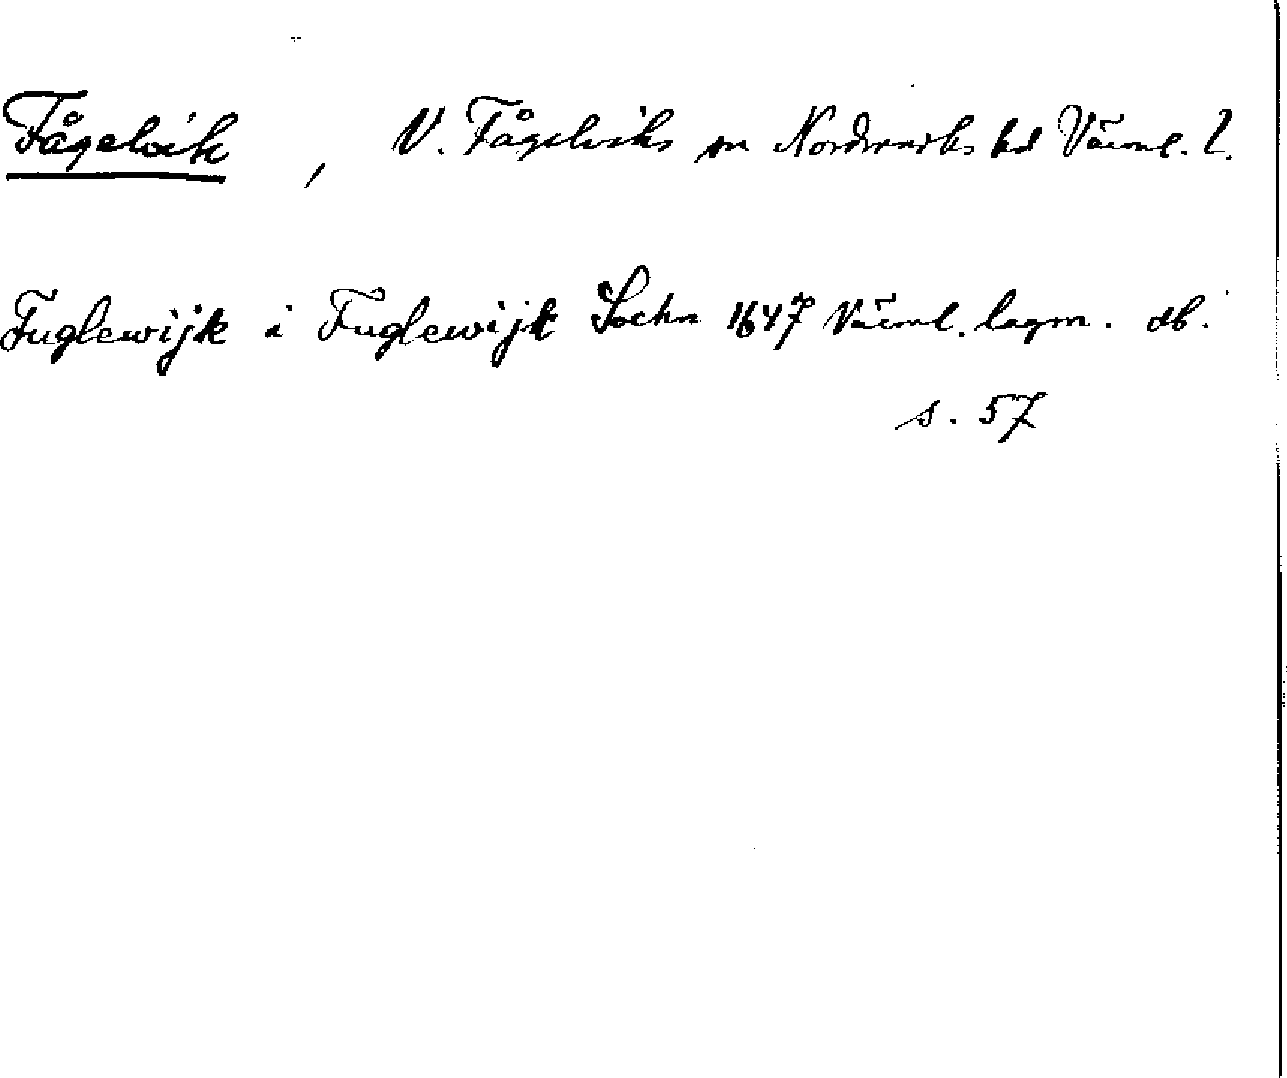 Fågelvik, V. Fågelviks sn Nordmarks hd Värml. l.
Fuglewijk i Fuglewijk Sochn 1647 Värml. lagm. db.
s. 57